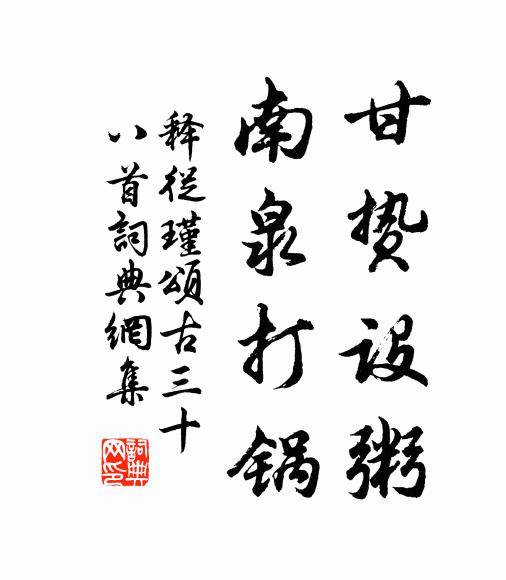 甘贽设粥
南泉打锅
释從瑾頌古三十
八首詞典網集
詞典网印